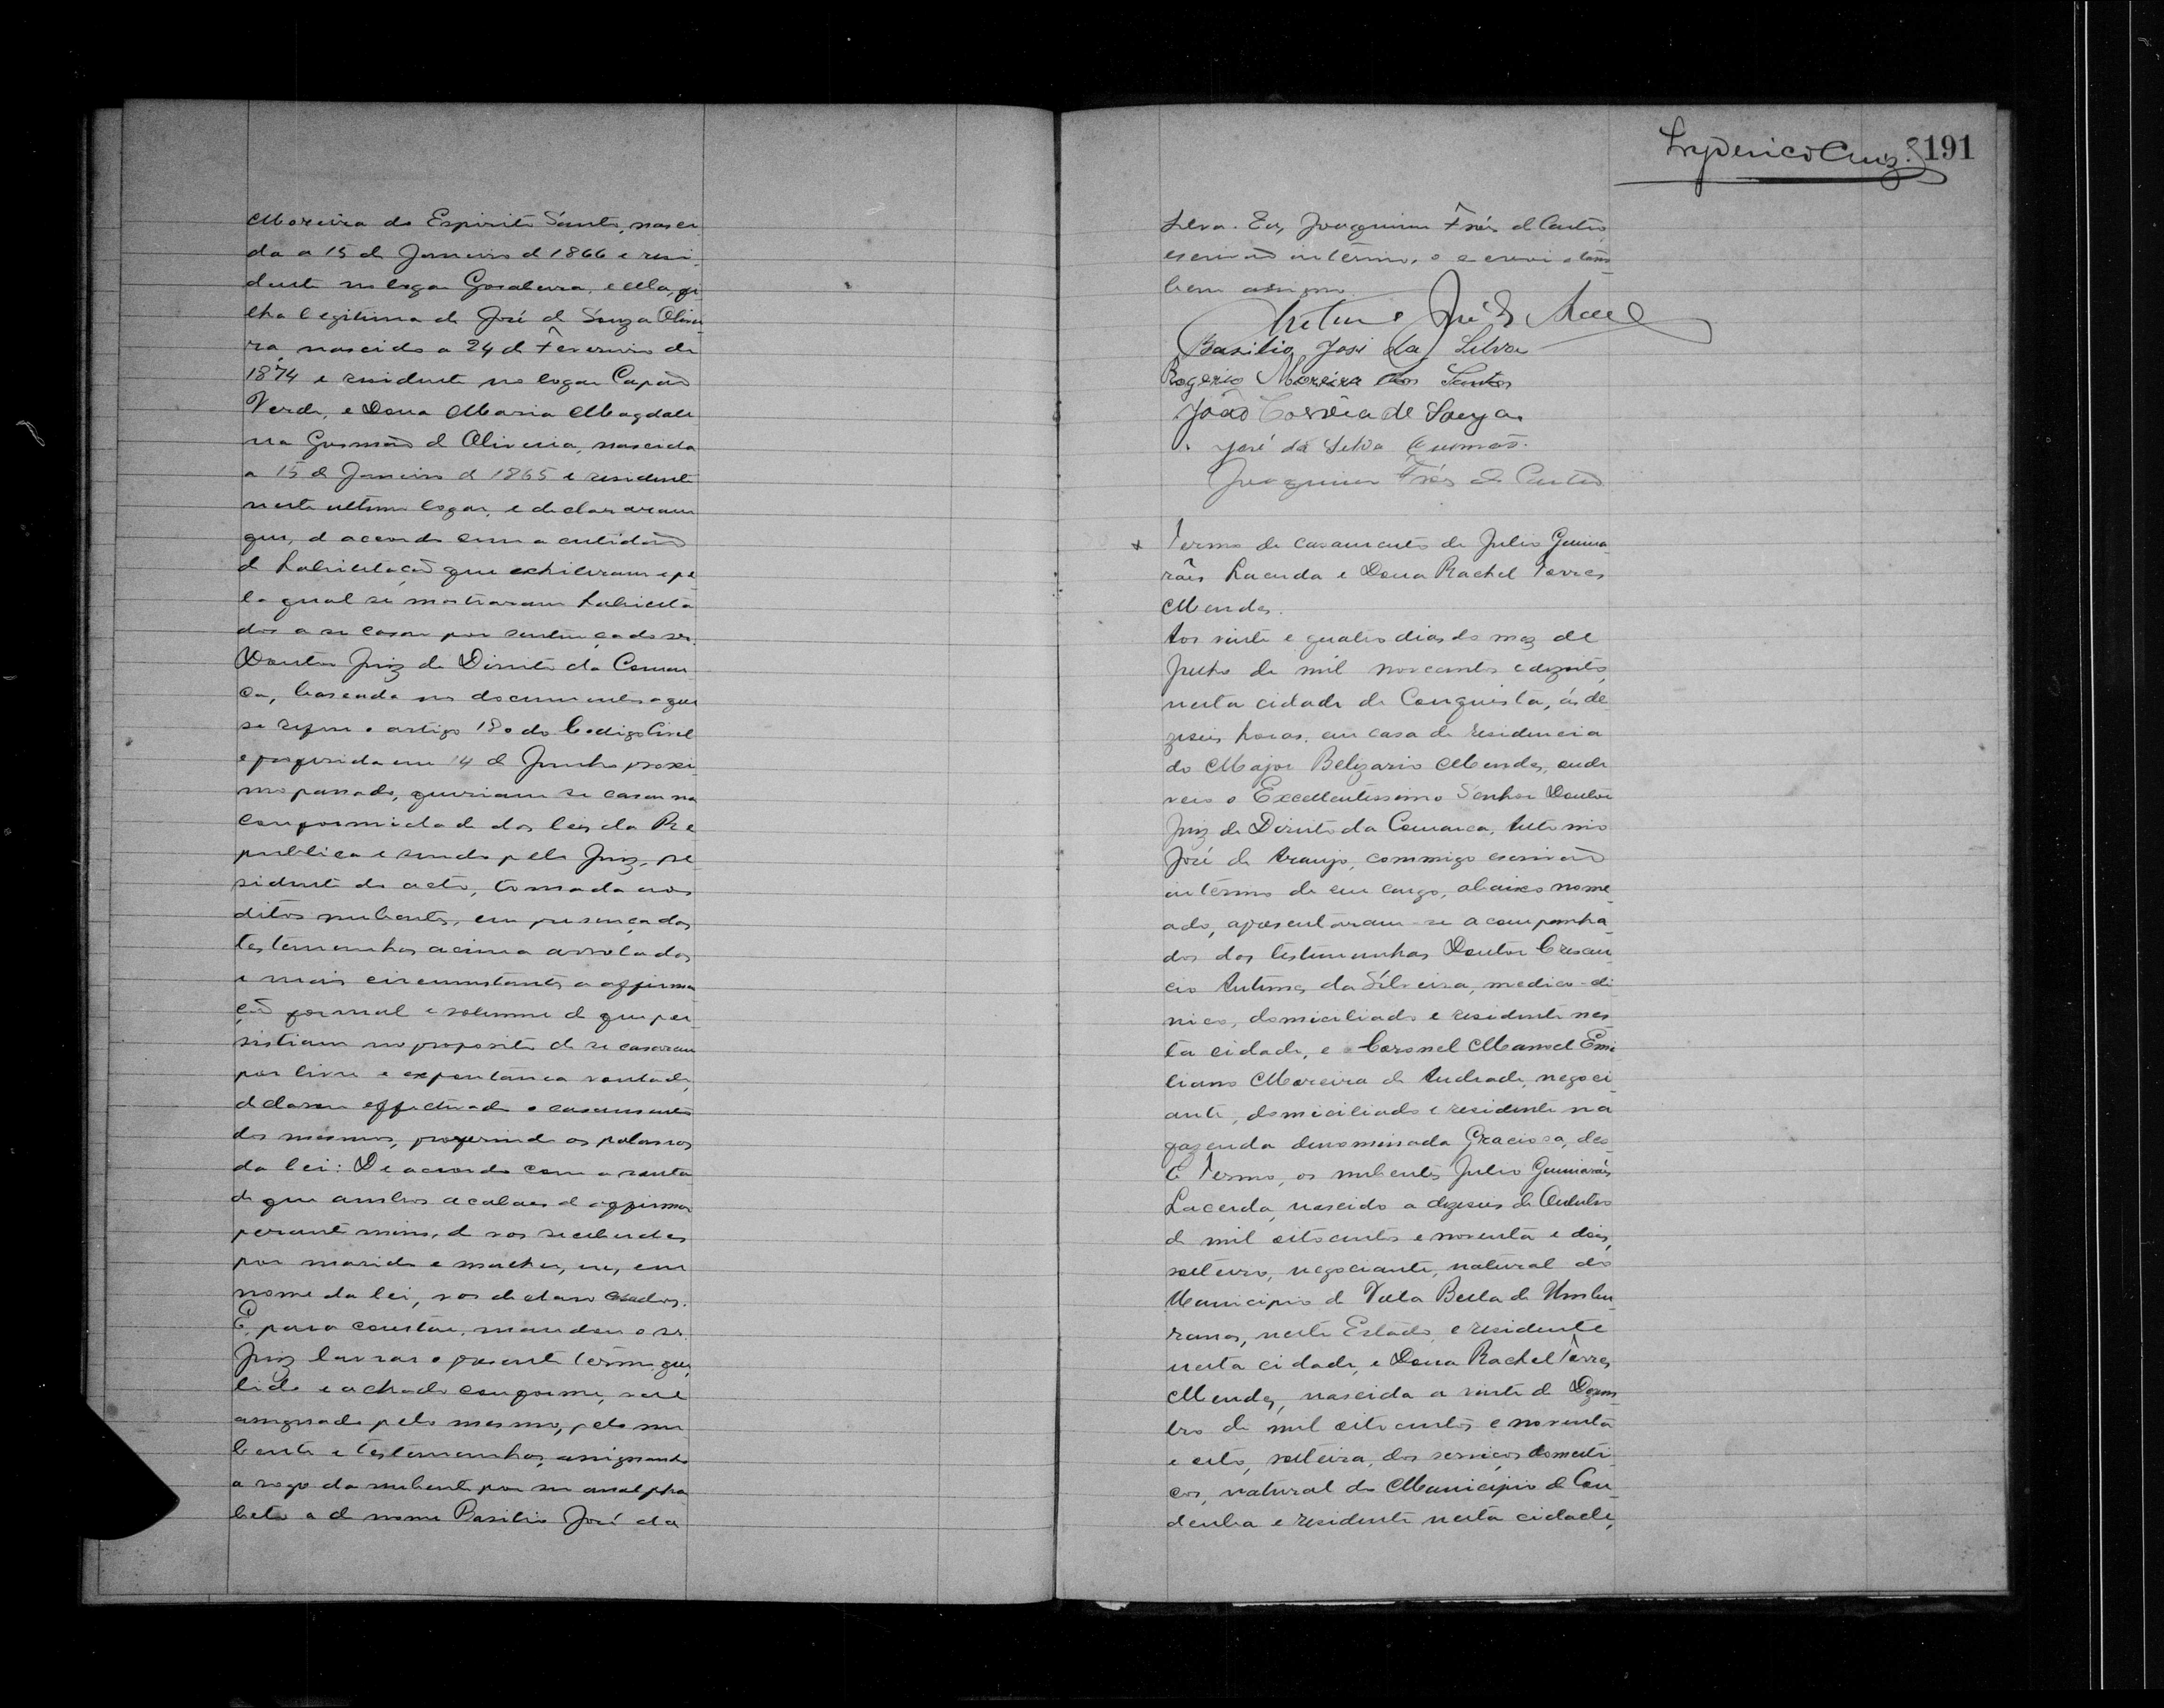 Moreira do Espirito Santo, nasci
da a 15 de Janeiro d 1866 e resi-
dente no logar Gosaleira, e ella, fi
lha legitima de José d Souza Olivei
ra, nascido a 24 d Fevereiro de
1874 e residente no logar Capão
Verde, e Dona Maria Magdale
na Gusmão d Oliveira, nascida
a 15 d Janeiro d 1865 e residente
neste ultimo logar, e declararam
que, d accordo com a certidão
d habilitação que exhibiram e pe
la qual se mostraram habilita
dos a se casar por sentença do sr.
Doutor Juiz de Direito da Comar
ca, baseada nos documentos a que
se refere o artigo 180 do Codigo Civil
e proferida em 14 d Junho proxi
mo passado, queriam se casar na
conformidade das leis da Re
publica e sendo pelo Juiz, pre
sidente do acto, tomada aos
ditos nubentes, em presença das
testemunhas acima arroladas
e mais circumstantes a affirma
ção formal e solemne d que per
sistiam no proposito d se casarem
por livre e expontanea vontade,
declarou effectuado o casamento
dos mesmos, proferindo as palavras
da lei: De accordo com a vonta
de que ambos acabaes d affirmar
perante mim, d vos receberdes
por marido e mulher, eu, em
nome da lei, vos declaro casados.
E, para constar, mandou o sr.
Juiz lavrar o presente termo que,
lido e achado conforme, será
assignado pelo mesmo, pelo nu
bente e testemunhas, assignando
a rogo da nubente por ser analpha
beta a d nome Basilio José da
Lryderico Cruz. 191
Silva. Eu, Joaquim Fróes d Castro,
escrivão interino, o escrevi e tam
bem assigno.
Antonio José d Araujo
Basilio José da Silva
Rogerio Moreira dos Santos
João Corrêia de Souza
José da Silva Gusmão.
Joaquim Fróes d Castro
Termo de casamento de Julio Guima
rães Lacerda e Dona Rachel Torres
Mendes.
Aos vinte e quatro dias do mez de
Julho de mil novecentos e dezoito,
nesta cidade de Conquista, ás de
zeseis horas, em casa de residencia
do Major Belizario Mendes, onde
veio o Excellentissimo Senhor Doutor
Juiz de Direito da Comarca, Antonio
José de Araujo, commigo escrivão
interino de seu cargo, abaixo nome
ado, apresentaram-se acompanha
dos das testemunhas Doutor Crescen
cio Antunes da Silveira, medico-cli
nico, domiciliado e residente nes
ta cidade, e o Coronel Manoel Emi
liano Moreira de Andrade, negoci
ante, domiciliado e residente na
fazenda denominada Graciosa, des
te Termo, os nubentes Julio Guimarães
Lacerda, nascido a dezeseis de Outubro
d mil oitocentos e noventa e dois,
solteiro, negociante, natural do
Municipio de Villa Bella de Umbu
ranas, neste Estado, e residente
nesta cidade, e Dona Rachel Torres
Mendes, nascida a vinte de Dezem
bro de mil oitocentos e noventa
e oito, solteira, dos serviços domesti
cos, natural do Municipio de Con
deuba e residente nesta cidade,